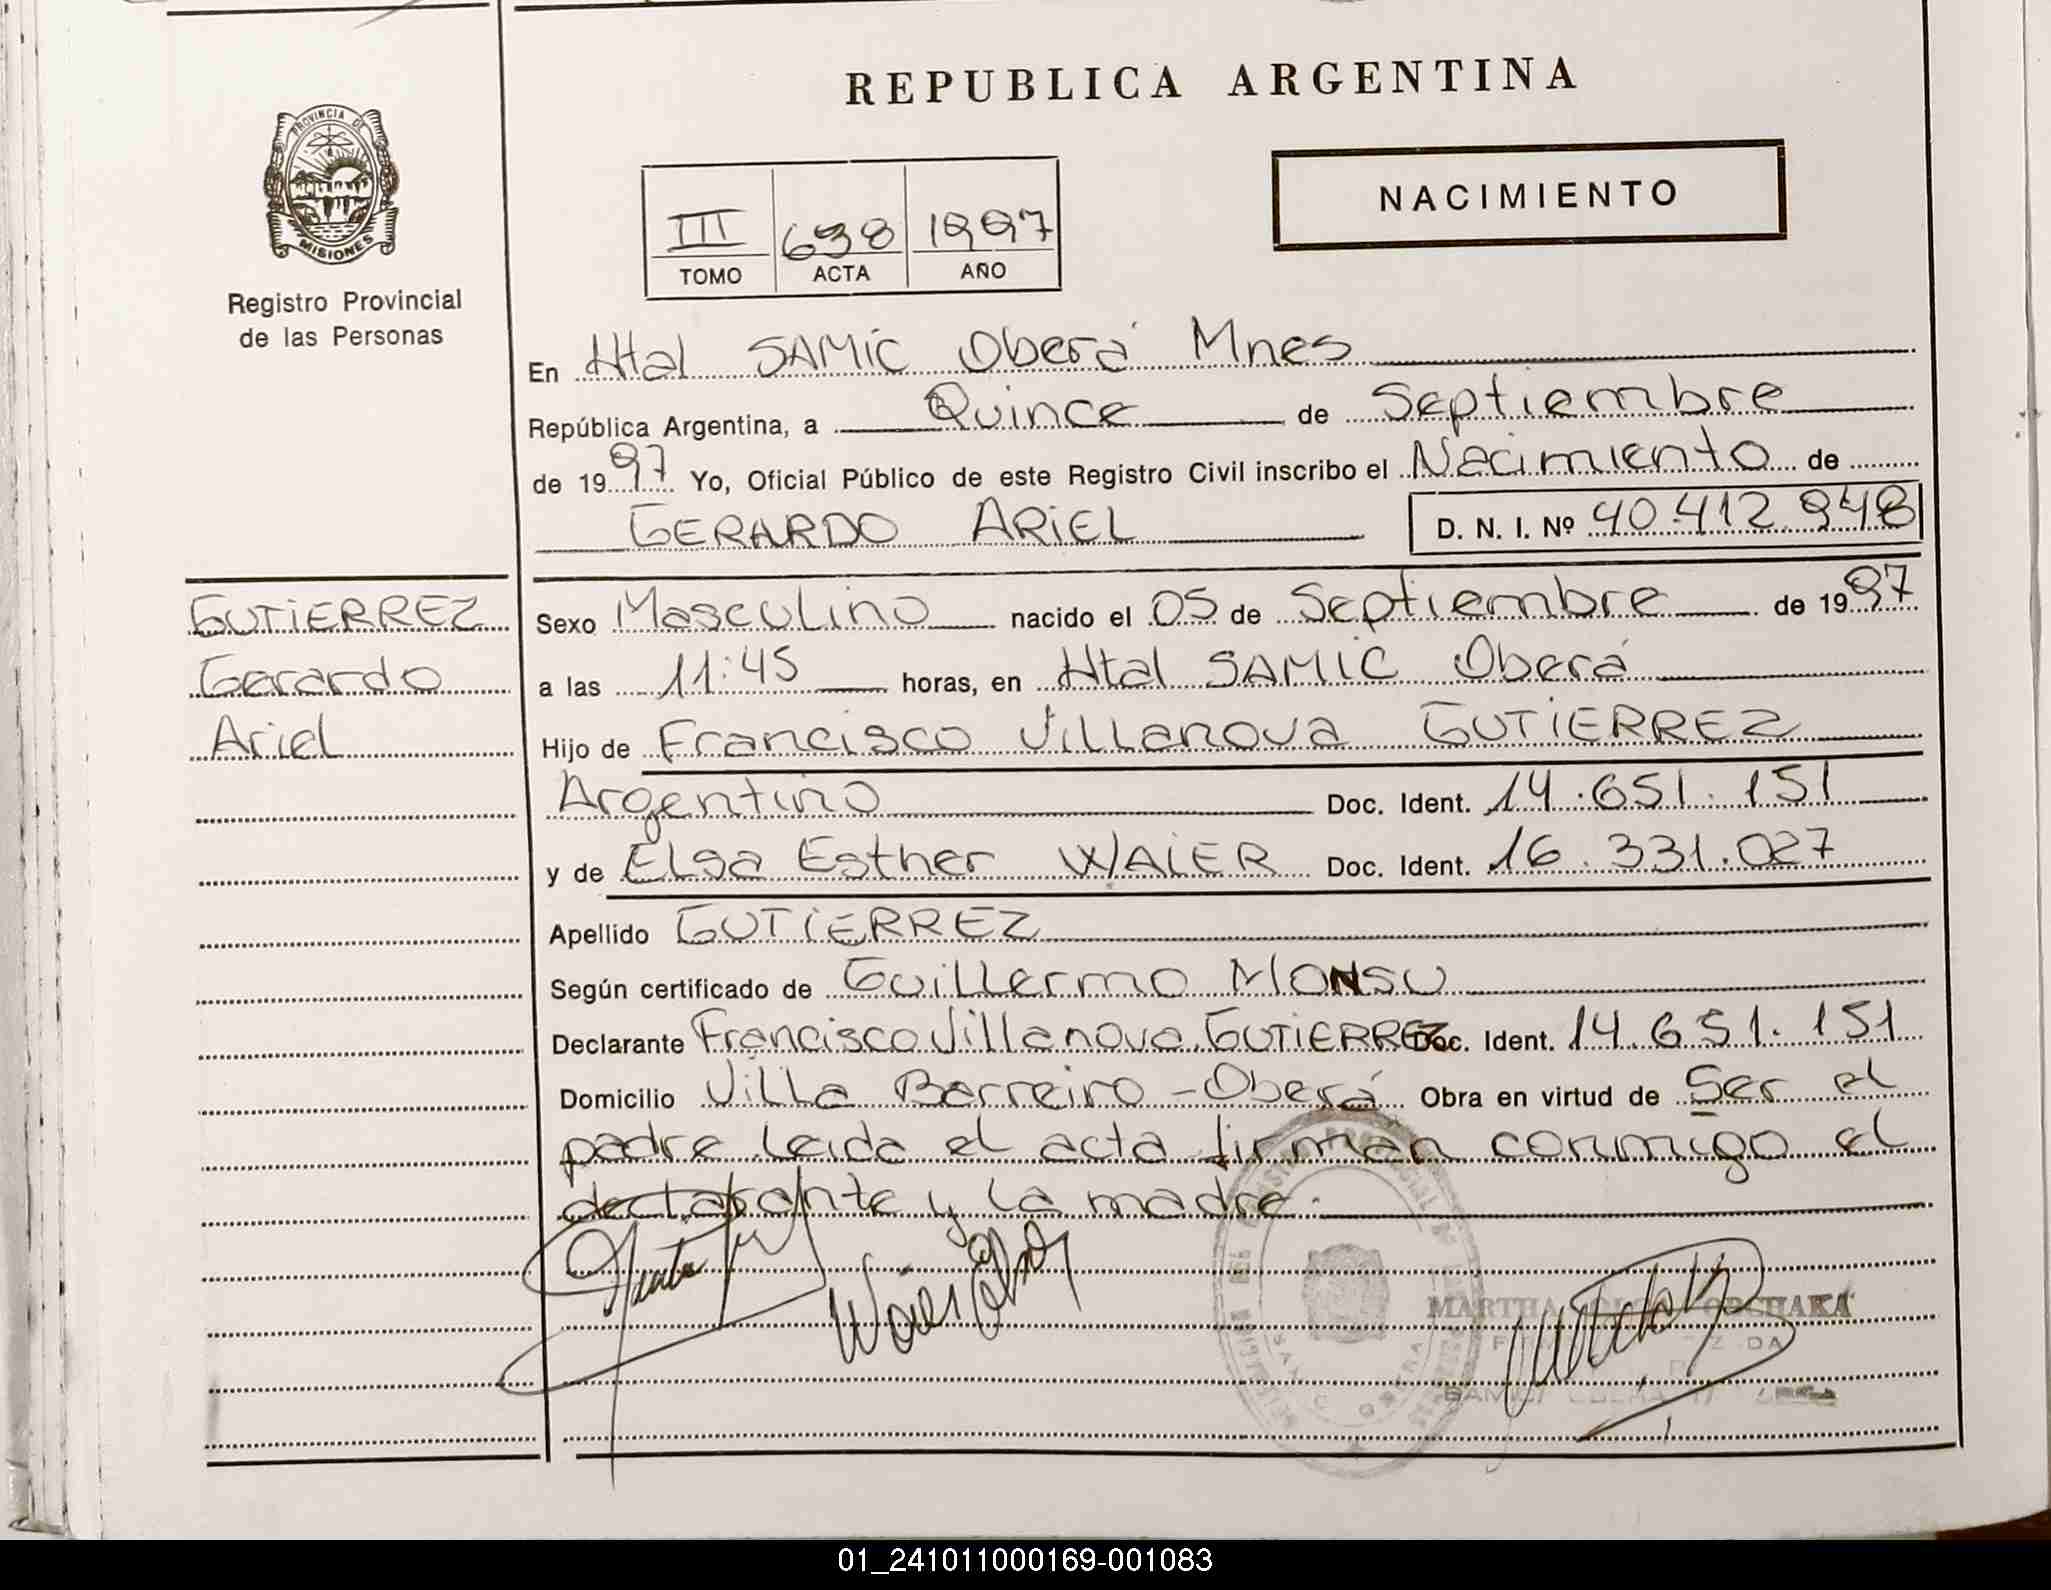 REPUBLICA ARGENTINA
PROVINCIA DE
MISIONES
Registro Provincial
de las Personas
NACIMIENTO
III 698 1997
TOMO ACTA AÑO
En Htal SAMIC Oberá Mnes
República Argentina, a Quince de Septiembre
de 1997 Yo, Oficial Público de este Registro Civil inscribo el Nacimiento de
GERARDO ARIEL D. N. I. Nº 40.412.948
GUTIERREZ
Gerardo
Ariel
Sexo Masculino nacido el 05 de Septiembre de 1997
a las 11:45 horas, en Htal SAMIC Oberá
Hijo de Francisco Villanova GUTIERREZ
Argentino Doc. Ident. 14.651.151
y de Elsa Esther WAIER Doc. Ident. 16.331.027
Apellido GUTIERREZ
Según certificado de Guillermo MONSU
Declarante Francisco Villanova GUTIERREZ Doc. Ident. 14.651.151
Domicilio Villa Barreiro - Oberá Obra en virtud de Ser el
padre leida el acta firman conmigo el
declarante y la madre.
MARTHA
01_241011000169-001083